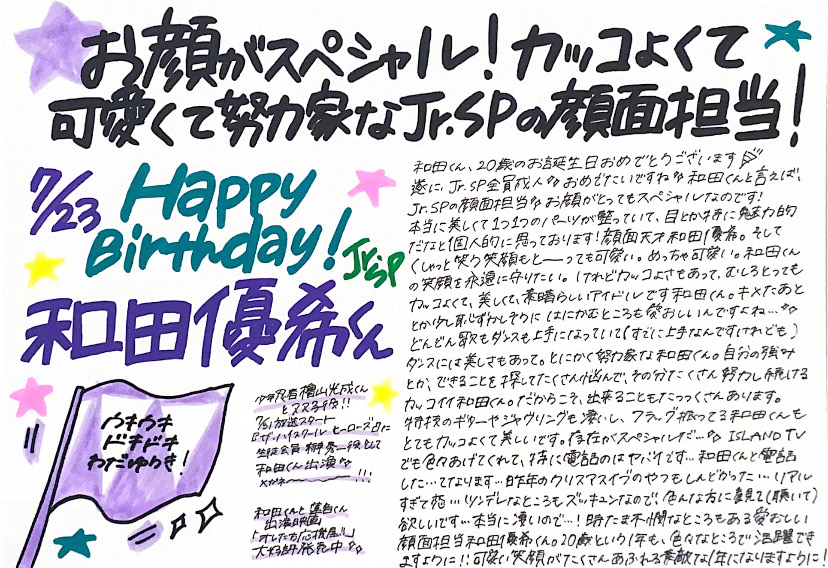 お顔がスペシャル!カッコよくて
可愛くて努力家なJr.SPの顔面担当!
7/23
Happy
Birthday!
Jr.SP
和田優希くん
ウキウキ
ドキドキ
わだゆうき!
少年忍者檜山光成くん
とアヌ子役!!
7/31放送スタート
『ザ・ハイスクール ヒーローズ』に
生徒会長 榊秀一役として
和田くん出演
メガネ〜!!!
和田くんと蓮音くん
出演映画
『オレたち応援屋!!』
大好評発売中
和田くん、20歳のお誕生日おめでとうございます
遂に、Jr.SP全員成人 おめでたいですね 和田くんと言えば、
Jr.SPの顔面担当 お顔がとってもスペシャルなのです!
本当に美しくて1つ1つのパーツが整っていて、目とか特に魅力的
だなと個人的に思っております!顔面天才和田優希。そして
くしゃっと笑う笑顔もと〜っても可愛い。めっちゃ可愛い。和田くん
の笑顔を永遠に守りたい。けれどカッコよさもあって、むしろとっても
カッコよくて、美しくて、素晴らしいアイドルです和田くん。キメたあと
とか少し恥ずかしそうにはにかむところも愛おしいんですよね…
どんどん歌もダンスも上手になっていて(すでに上手なんですけれども)
ダンスには美しさもあって。とにかく努力家な和田くん。自分の強み
とか、できることを探してたくさん悩んで、その分たくさん努力し続ける
カッコイイ和田くん。だからこそ、出来ることもたっっくさんあります。
特技のギターやジャグリングも凄いし、フラッグ振ってる和田くんも
とてもカッコよくて美しいです。存在がスペシャルだ… ISLAND TV
でも色々あげてくれて、特に電話のはヤバイです…和田くんと電話
した…てなります…昨年のクリスマスイブのやつもしんどかった…リアル
すぎて死…ツンデレなところもズッキュンなので、色んな方に観て(聴いて)
欲しいです…本当に凄いので…!時たま不憫なところもある愛おしい
顔面担当和田優希くん。20歳という1年も、色々なところで活躍でき
ますように!!可愛い笑顔がたくさんあふれる素敵な1年になりますように!